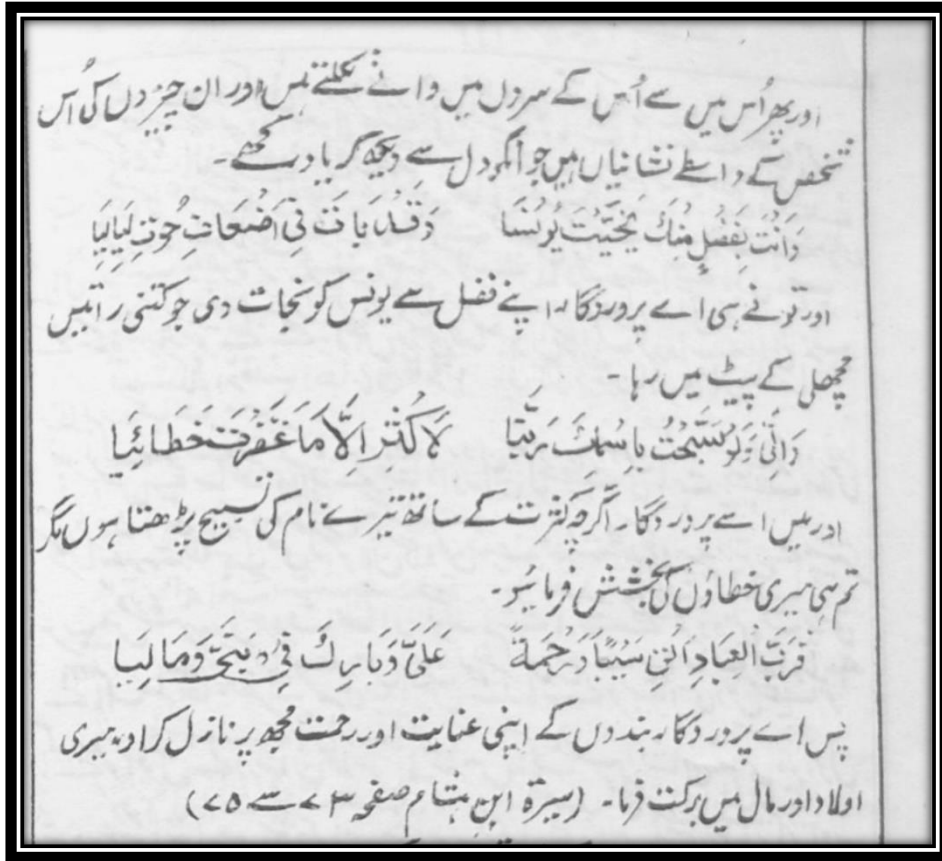 اور پھر اُس میں سے اُس کے سروں میں دانے نکلتے ہیں اور ان چیزوں کی اُس
شخص کے واسطے نشانیاں ہیں جو انکو دل سے دیکھ کر یاد رکھے۔
وَاَنْتَ بِفَضْلٍ مِنْكَ نَجَّيْتَ يُونُسًا وَقَدْ بَاتَ فِي اَضْعَافِ حُوتٍ لَيَالِيَا
اور تو نے ہی اے پروردگار اپنے فضل سے یونس کو نجات دی جو کتنی راتیں
مچھلی کے پیٹ میں رہا۔
وَاِنِّي وَلَوْ سَبَّحْتُ بِاسْمِكَ رَبَّنَا لَاَكْثِرُ اِلَّا مَا غَفَرْتَ خَطَائِيَا
اور میں اے پروردگار اگرچہ کثرت کے ساتھ تیرے نام کی تسبیح پڑھتا ہوں مگر
تم ہی میری خطاؤں کی بخشش فرمائیو۔
فَرَبَّ الْعِبَادِ اَلْقِ سَيْبًا وَرَحْمَةً عَلَيَّ وَبَارِكْ فِي بَنِيَّ وَمَالِيَا
پس اے پروردگار بندوں کے اپنی عنایت اور رحمت مجھ پر نازل کر اور میری
اولاد اور مال میں برکت فرما۔ (سیرۃ ابن ہشام صفحہ ۷۳ سے ۷۵)